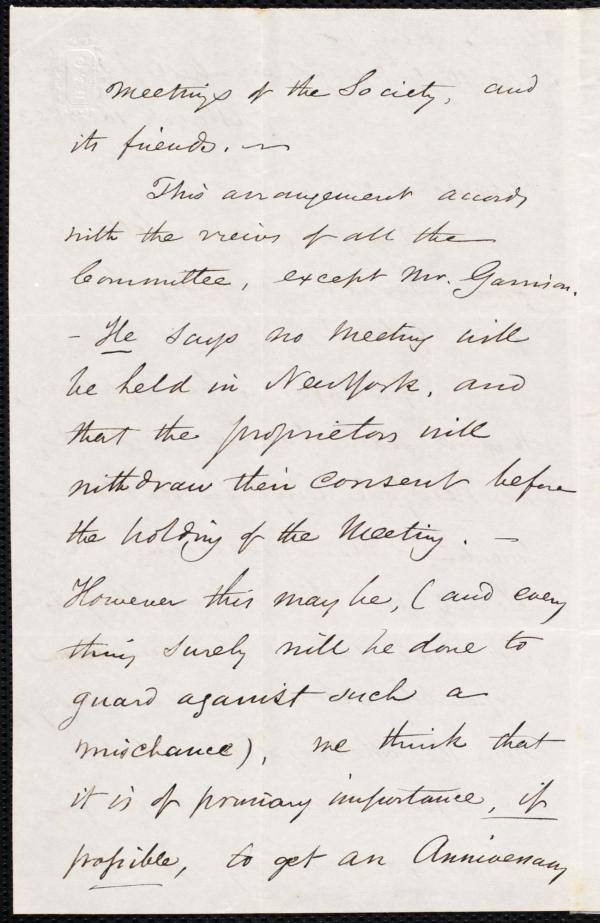 meetings of the Society, and
its friends. —
This arrangement accords
with the views of all the
Committee, except Mr. Garrison.
- He says no Meeting will
be held in New York, and
that the proprietors will
withdraw their consent before
the holding of the Meeting. —
However this may be, (and every
thing surely will be done to
guard against such a
mischance), we think that
it is of primary importance, if
possible, to get an Anniversary